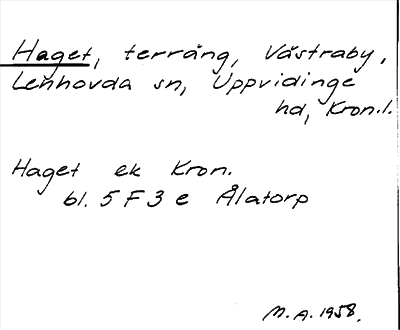 Haget, terräng, Västraby,
Lenhovda sn, Uppvidinge
hd, Kron.l.
Haget ek Kron.
bl. 5 F 3 e Ålatorp
M.A. 1958.